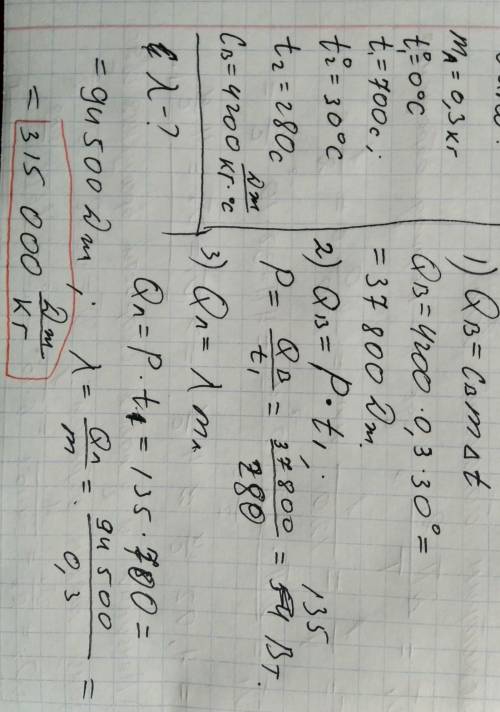 m_л = 0,3 кг
t₁° = 0°C
t₁ = 700 с;
t₂° = 30°C
t₂ = 280 с
C_в = 4200 Дж/кг·°C
λ - ?
1) Q_в = C_в m Δt
Q_в = 4200 · 0,3 · 30° =
= 37 800 Дж
2) Q_в = P · t₁;
P = Q_в/t₁ = 37800/280 = 135 Вт.
3) Q_л = λ m_л
Q_л = P · t₁ = 135 · 700 =
= 94 500 Дж; λ = Q_л/m = 94 500/0,3 =
= 315 000 Дж/кг